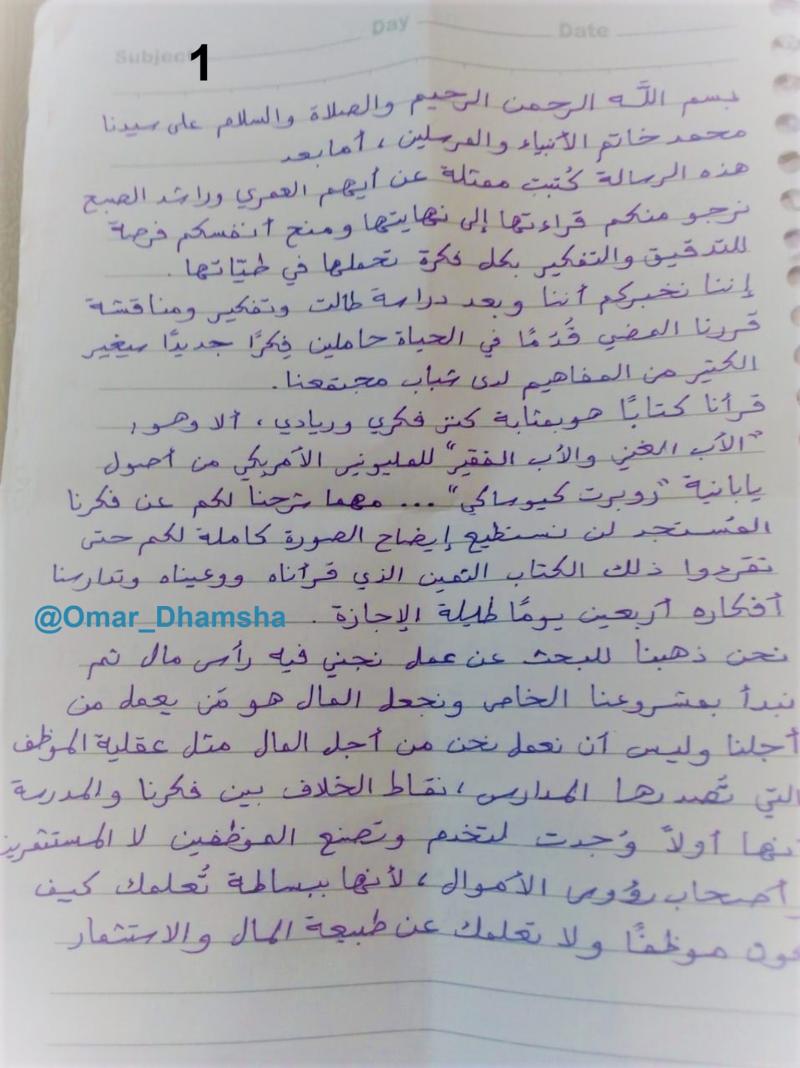 Day Date
Subject
1
بسم اللَّه الرحمن الرحيم والصلاة والسلام على سيدنا
محمد خاتم الأنبياء والمرسلين ، أما بعد
هذه الرسالة كُتبت ممثلة عن أيهم العمري وراشد الصبع
نرجو منكم قراءتها إلى نهايتها ومنح أنفسكم فرصة
للتدقيق والتفكير بكل فكرة تحملها في طيّاتها .
إننا نخبركم أننا وبعد دراسة طالت وتفكير ومناقشة
قررنا المضي قُدمًا في الحياة حاملين فِكرًا جديدًا سيغير
الكثير من المفاهيم لدى شباب مجتمعنا .
قرأنا كتابًا هو بمثابة كنز فكري وريادي ، ألا وهو :
"الأب الغني والأب الفقير" للمليونير الأمريكي من أصول
يابانية "روبرت كيوساكي" ... مهما شرحنا لكم عن فكرنا
المُستجد لن نستطيع إيضاح الصورة كاملة لكم حتى
تقرءوا ذلك الكتاب الثمين الذي قرأناه ووعيناه وتدارسنا
أفكاره أربعين يومًا طيلة الإجازة .
@Omar_Dhamsha
نحن ذهبنا للبحث عن عمل نجني فيه رأس مال ثم
نبدأ بمشروعنا الخاص ونجعل المال هو مَن يعمل من
أجلنا وليس أن نعمل نحن من أجل المال مثل عقلية الموظف
التي تُصدرها المدارس ، نقاط الخلاف بين فكرنا والمدرسة
أنها أولاً وُجدت لتخدم وتصنع الموظفين لا المستثمرين
وأصحاب رؤوس الأموال ، لأنها ببساطة تُعلمك كيف
تكون موظفًا ولا تعلمك عن طبيعة المال والاستثمار